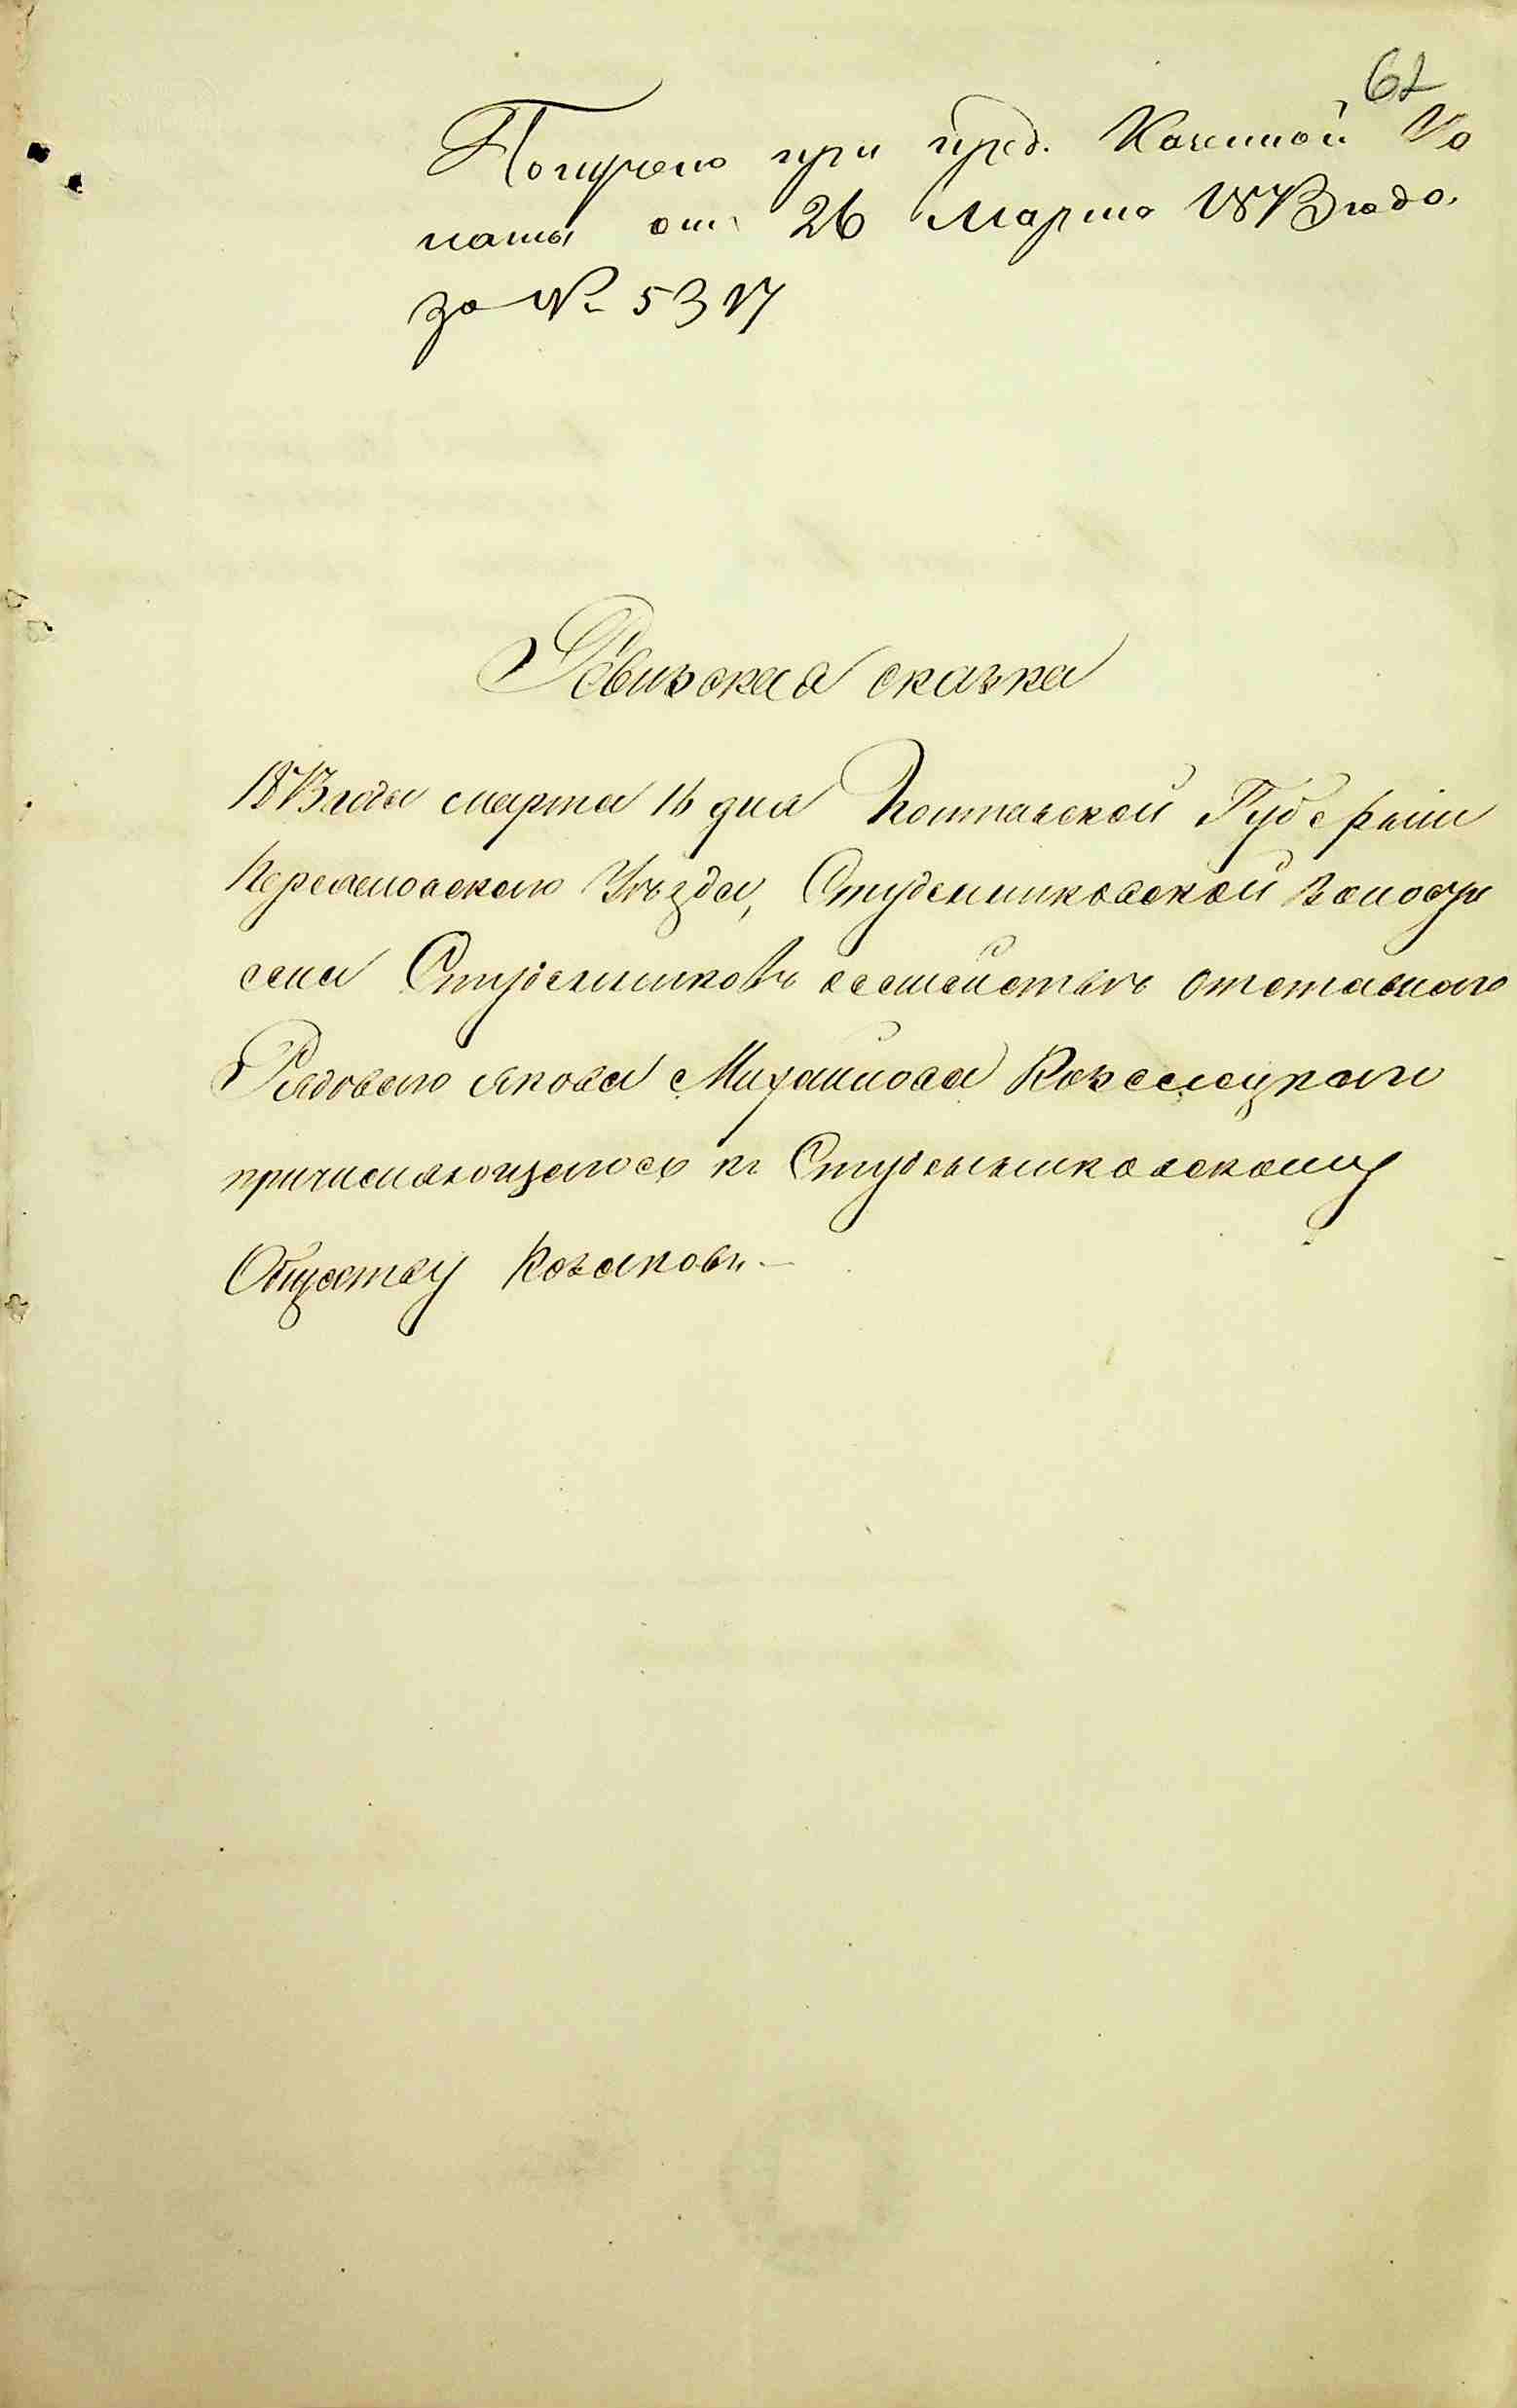 62
Получено при пред. Казенной Па
латы отъ 26 Марта 1873 года.
за № 5317
Ревизская сказка
1873 года марта 16 дня Полтавской Губерніи
Переяславскаго Уѣзда, Студениковской волости
села Студениковъ о семействѣ отставнаго
Рядоваго Якова Михайлова
причисляющагося къ Студениковскому
Обществу Козаковъ. —